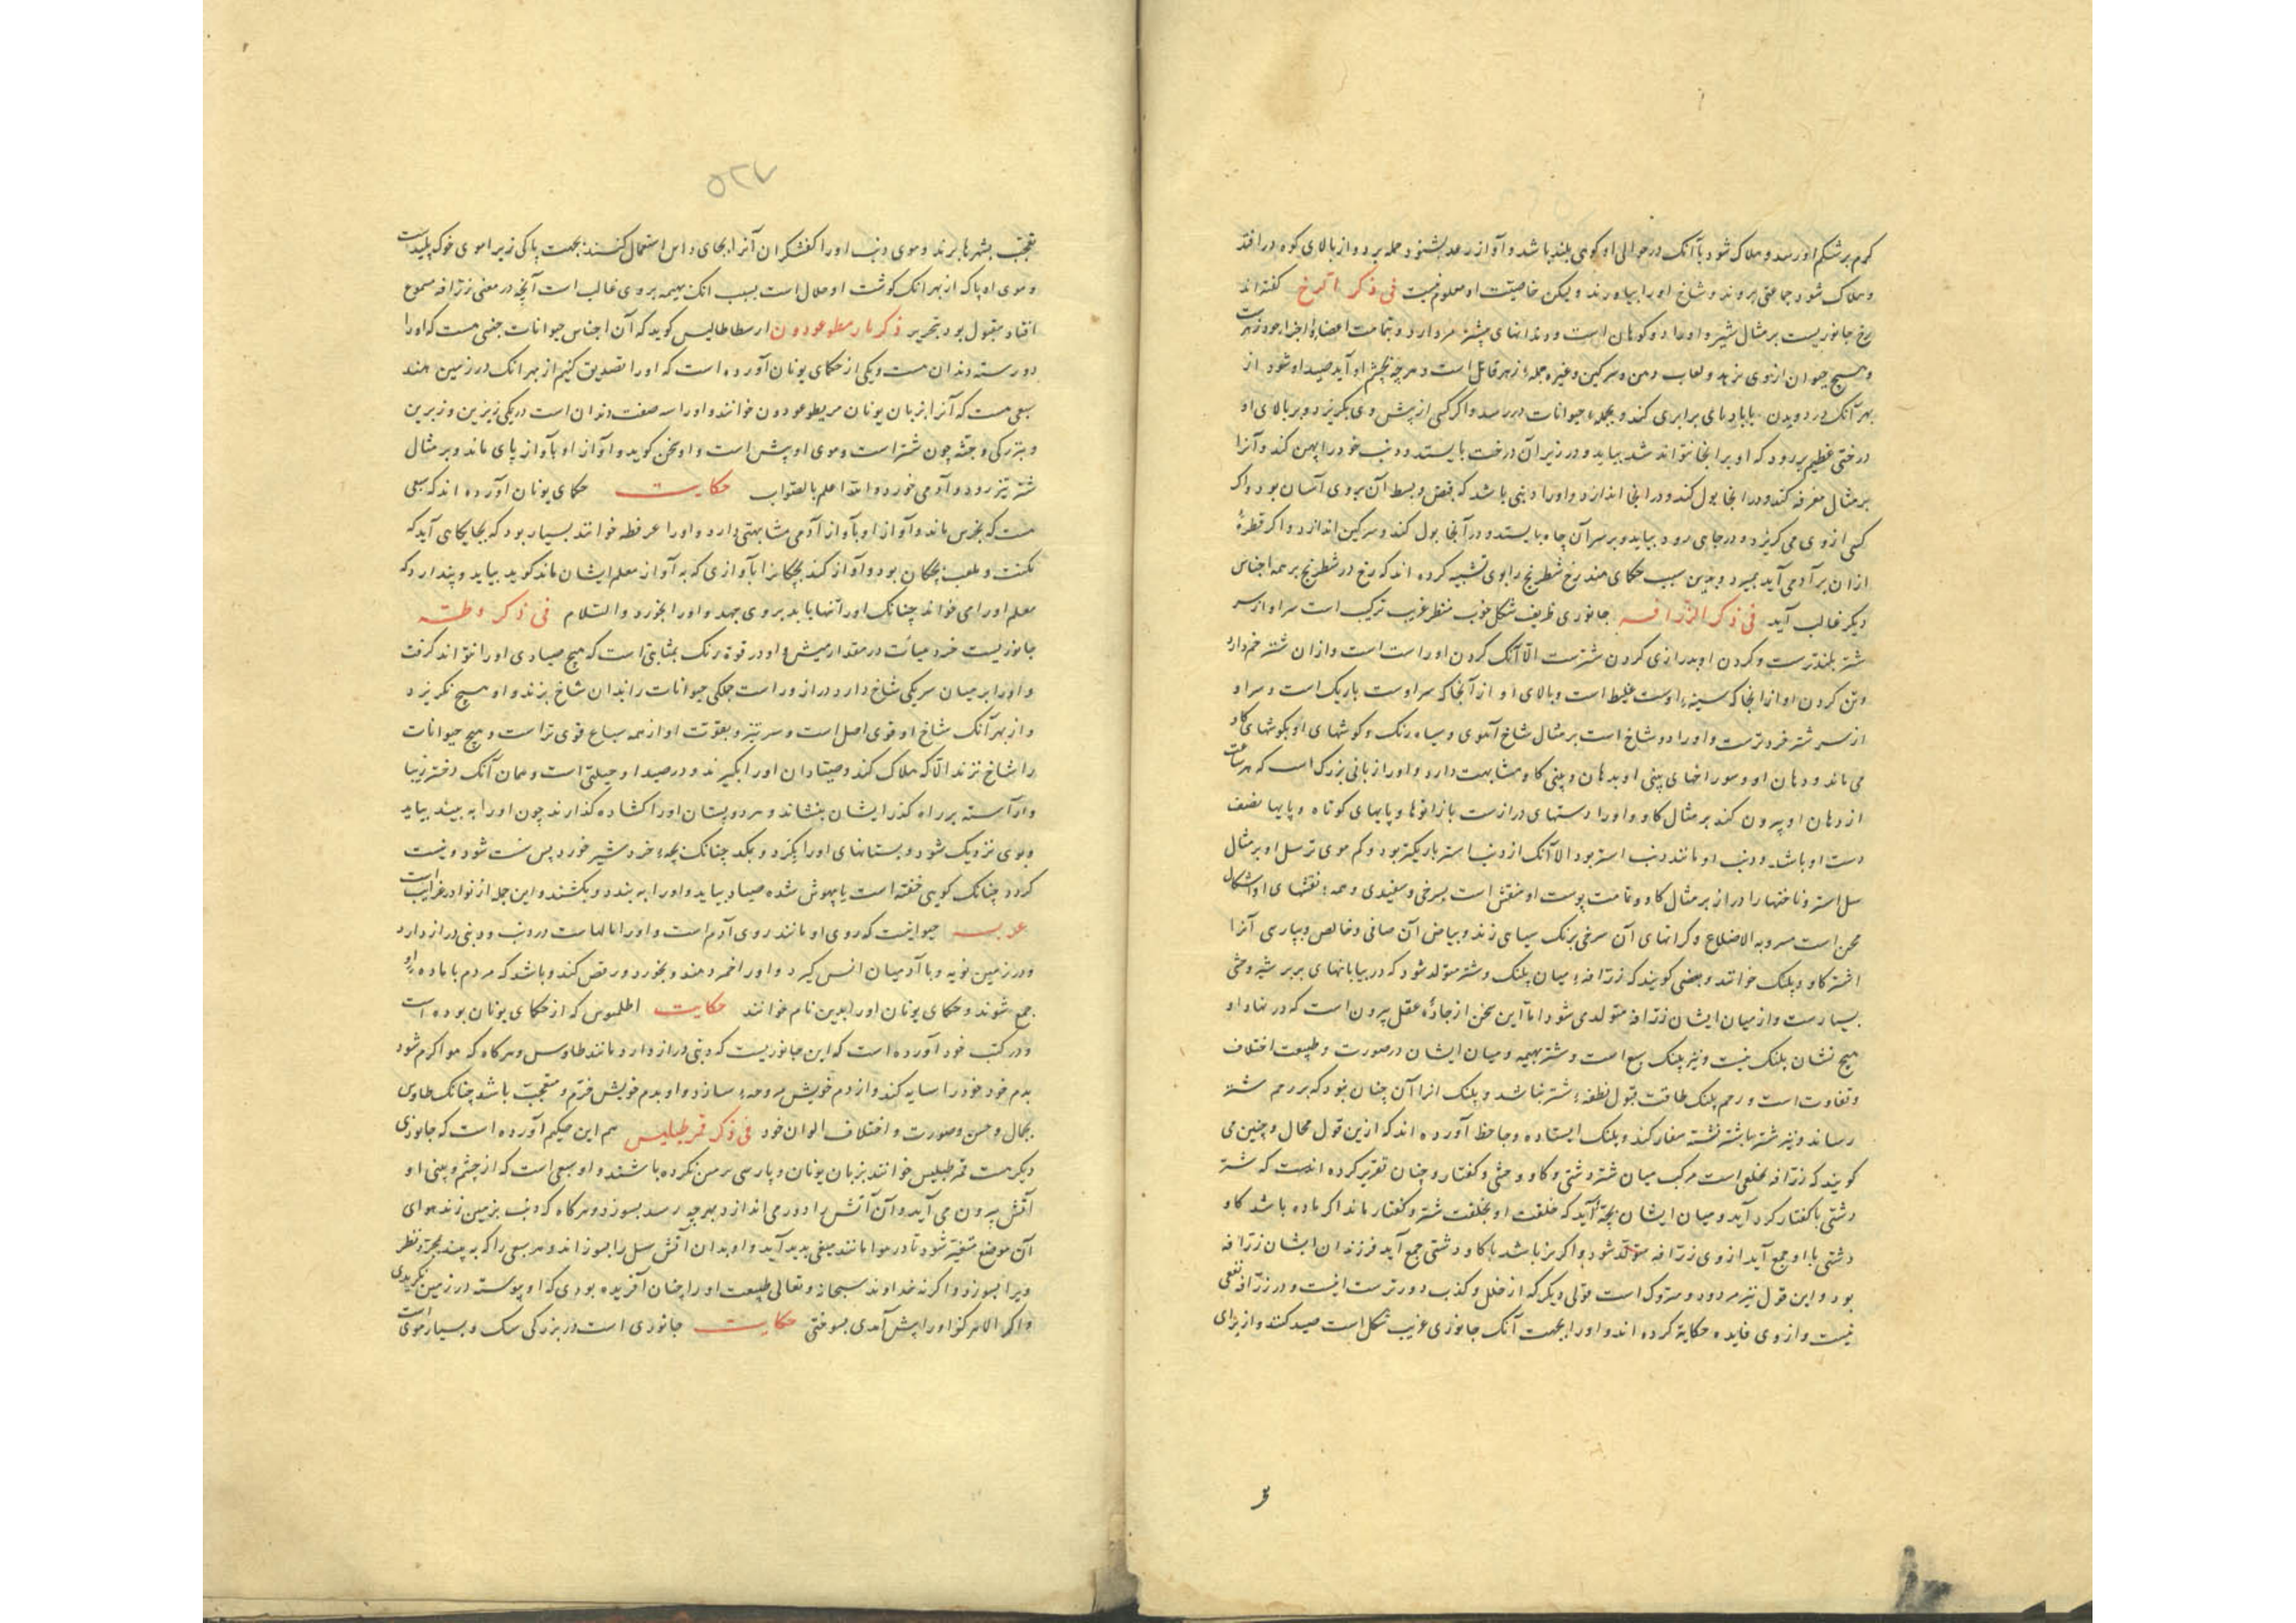 کرم بر شکم او رسد و هلاک شود یا آنک در حوالی او کوهی بلند باشد و آواز رعد بشنود حمله برد و از بالای کوه درافتد
و هلاک شود جماعتی بروند و شاخ او را بیاورند و لیکن خاصیت او معلوم نیست فی ذکر الرخ گفته‌اند
رخ جانوریست بر مثال شتر و او را دو کوهان است و دندانهای پیشتر مر دارد و تمامت اعضا و اجزاء وجود زهرست
و هیچ حیوان از وی نرهد و لعاب دهن و سرکین و غیره جمله زهر قاتل است و هر چه بچشم او آید صید او شود از
بهر آنک در دویدن با بادهای برابری کند و بجمله حیوانات در رسد و اکر کسی از پیش وی بکریزد و بر بالای او
درختی عظیم بر رود که او بر آنجا نتواند شد بیاید و در زیر آن درخت بایستد و دنب خود را پهن کند و آنرا
بر مثال مغرفه کند و در آنجا بول کند و در آنجا اندازد و او را دنبی باشد که قبض و بسط آن بر وی آسان بود و اکر
کسی از وی می کریزد و در چاهی رود بیاید و بر سر آن چاه بایستد و در آنجا بول کند و سرکین اندازد و اکر قطرهٔ
از ان بر آدمی آید بمیرد و بدین سبب حکمای هند رخ شطرنج را بوی تشبیه کرده اند که رخ در شطرنج بر همه اجناس
دیکر غالب آید فی ذکر الزرافه جانوری ظریف شکل خوب منظر غریب ترکیب است سر او از سر
شتر بلندترست و کردن او بدرازی کردن شترست الا آنک کردن او راست است و از ان شتر خم دارد
و تن کردن او از انجا که سینه اوست غلیظ است و بالای او از آنجا که سر اوست باریک است و سر او
از سر شتر فروترست و او را دو شاخ است بر مثال شاخ آهوی و سیاه رنک و کوشهای او بکوشهای کاو
می ماند و دهان او و سوراخهای بینی او بدهان و بینی کاو مشابهت دارد و او را زبانی بزرک است که هر ساعت
از دهان او بیرون کند بر مثال کاو و او را دستهای درازست با زانوها و پایهای کوتاه و پایها نصف
دست او باشد و دنب او مانند دنب استر بود الا آنک از دنب استر باریکتر بود و کم موی تر سل او بر مثال
سل استر و ناخنها را دراز بر مثال کاو و تمامت پوست او منقش است بسرخی و سفیدی و همه نقشهای او اشکال
محن است مسروبه الاضلاع و کرانهای آن سرخی برنک سیاهی زند و بیاض آن صافی و خالص و بپارسی آنرا
اشتر کاو و پلنک خوانند و بعضی کویند که زرافه میان پلنک و شتر متولد شود که در بیابانهای بربر شتر وحشی
بسیارست و از میان ایشان زرافه متولد می شود اما این سخن از جادهٔ عقل بیرون است که در نهاد او
هیچ نشان پلنک نیست و نیز پلنک سبع است و شتر بهیمه و میان ایشان در صورت و طبیعت اختلاف
و تفاوت است و رحم پلنک طاقت قبول نطفه شتر نباشد و پلنک انرا آن چنان نبود که بر رحم شتر
رساند و نیز شتر با شتر نشسته سفاد کند و پلنک ایستاده و جاحظ آورده اند که ازین قول محال و چنین می
کویند که زرافه خلقی است مرکب میان شتر دشتی و کاو وحشی و کفتار و چنان تقریر کرده اندست که شتر
دشتی با کفتار کرد آید و میان ایشان بچهٔ آید که خلقت او بخلقت شتر و کفتار ماند اکر ماده باشد کاو
دشتی با او جمع آید از وی زرافه متولد شود و اکر نر باشد با کاو دشتی جمع آید فرزندان ایشان زرافه
بود و این قول نیز مردود و متروک است قولی دیکر که از خلل و کذب دورترست اینست و در زرافه نفعی
نیست و از وی فایده حکایة کرده اند و او را بجهت آنک جانوری غریب شکل است صید کنند و از برای
۵۲۷
تعجب بشهرها برند و موی دنب او را کفشکران آنرا بجای داس استعمال کنند بجهت پاکی زیرا موی خوک پلیدست
و موی او پاک از بهر انک کوشت او حلال است بسبب انک بهیمه بر وی غالب است آنچه در معنی زرافه مسموع
افتاد مقبول بود تحریر ذکر مارمطوعودون ارسطاطالیس کوید که آن اجناس حیوانات جنسی هست که او را
دو رسته دندان هست و یکی از حکمای یونان آورده است که او را تصدیق کنیم از بهر انک در زمین هند
سبعی هست که آنرا بزبان یونان مریطوعودون خوانند و او را سه صفت دندان است در یکی زیرین و زبرین
و بزرکی و جثه چون شتر است و موی او پیش است و او سخن کوید و آواز او بآواز پای ماند و بر مثال
شتر تیز رود و آدمی خورد و الله اعلم بالصواب حکایت حکمای یونان آورده اند که سبعی
هست که بخرس ماند و آواز او بآواز آدمی مشابهتی دارد و او را عرفطه خوانند بسیار بود که بجایکاهی آید که
مکتب و ملعب بچکان بود و آواز کند بچکانرا بآوازی که به آواز معلم ایشان ماند کوید بیاید و پندارد که
معلم او را می خواند چنانک او را تنها یابد بر وی جهد و او را بخورد والسلام فی ذکر وطه
جانوریست خرد میانت در مقدار میش و او در قوة رنک بمثابتی است که هیچ صیادی او را نتواند کرفت
و او را بر میان سر یکی شاخ دارد دراز و راست جملکی حیوانات را بدان شاخ بزند و او هیچ نکریزد
و از بهر آنک شاخ او قوی اصل است و سر تیز و بقوت او از همه سباع قوی تر است و هیچ حیوانات
را شاخ نزند الا که هلاک کند و صیادان او را بکیرند و در صید او حیلتی است و همان آنک دختر زیبا
و آراسته بر راه کذر ایشان بنشاند و هر دو پستان او را کشاده کذارند چون او را به بیند بیاید
و بوی نزدیک شود و پستانهای او را بکیرد و بمکد چنانک بچه خرد شیر خورد پس مست شود و نیست
کردد چنانک کویی خفته است یا بیهوش شده صیاد بیاید و او را به بندد و بکشند و این جمله از نوادر غرایب است
عربه حیوانیست که روی او مانند روی آدم است و او را بالهاست در دنب و دنبی دراز دارد
و در زمین نوبه و با آدمیان انس کیرد و او را خمر دهند و بخورد و رقص کند و باشد که مردم با ماده او
جمع شوند و حکمای یونان او را بدین نام خوانند حکایت اطلموس که از حکمای یونان بوده است
و در کتب خود آورده است که این جانوریست که دنبی دراز دارد مانند طاوس و هرکاه که هوا کرم شود
بدم خود خود را سایه کند و از دم خویش مروحه سازد و او بدم خویش خرم و متعجب باشد چنانک طاوس
بجمال و حسن و صورت و اختلاف الوان خود فی ذکر قرطیلیس هم این حکیم آورده است که جانوری
دیکر هست قرطیلیس خوانند بزبان یونان و پارسی برمن نکرده باشند و او سبعی است که از چشم و بینی او
آتش بیرون می آید و آن آتش را دور می اندازد بهر چه رسد بسوزد و هرکاه که دنب بزمین زند هوای
آن موضع متغیر شود تا در هوا مانند میغی پدید آید و او بدان آتش سل را بسوزاند و هر سبعی را که به بیند بمجرد نظر
ویرا بسوزد و اکر نه خداوند سبحانه و تعالی طبیعت او را چنان آفریده بودی که او پیوسته در زمین نکریدی
و اکر الا هر کز او را پیش آمدی بسوختی حکایت جانوری است در بزرکی سک و بسیار موی است